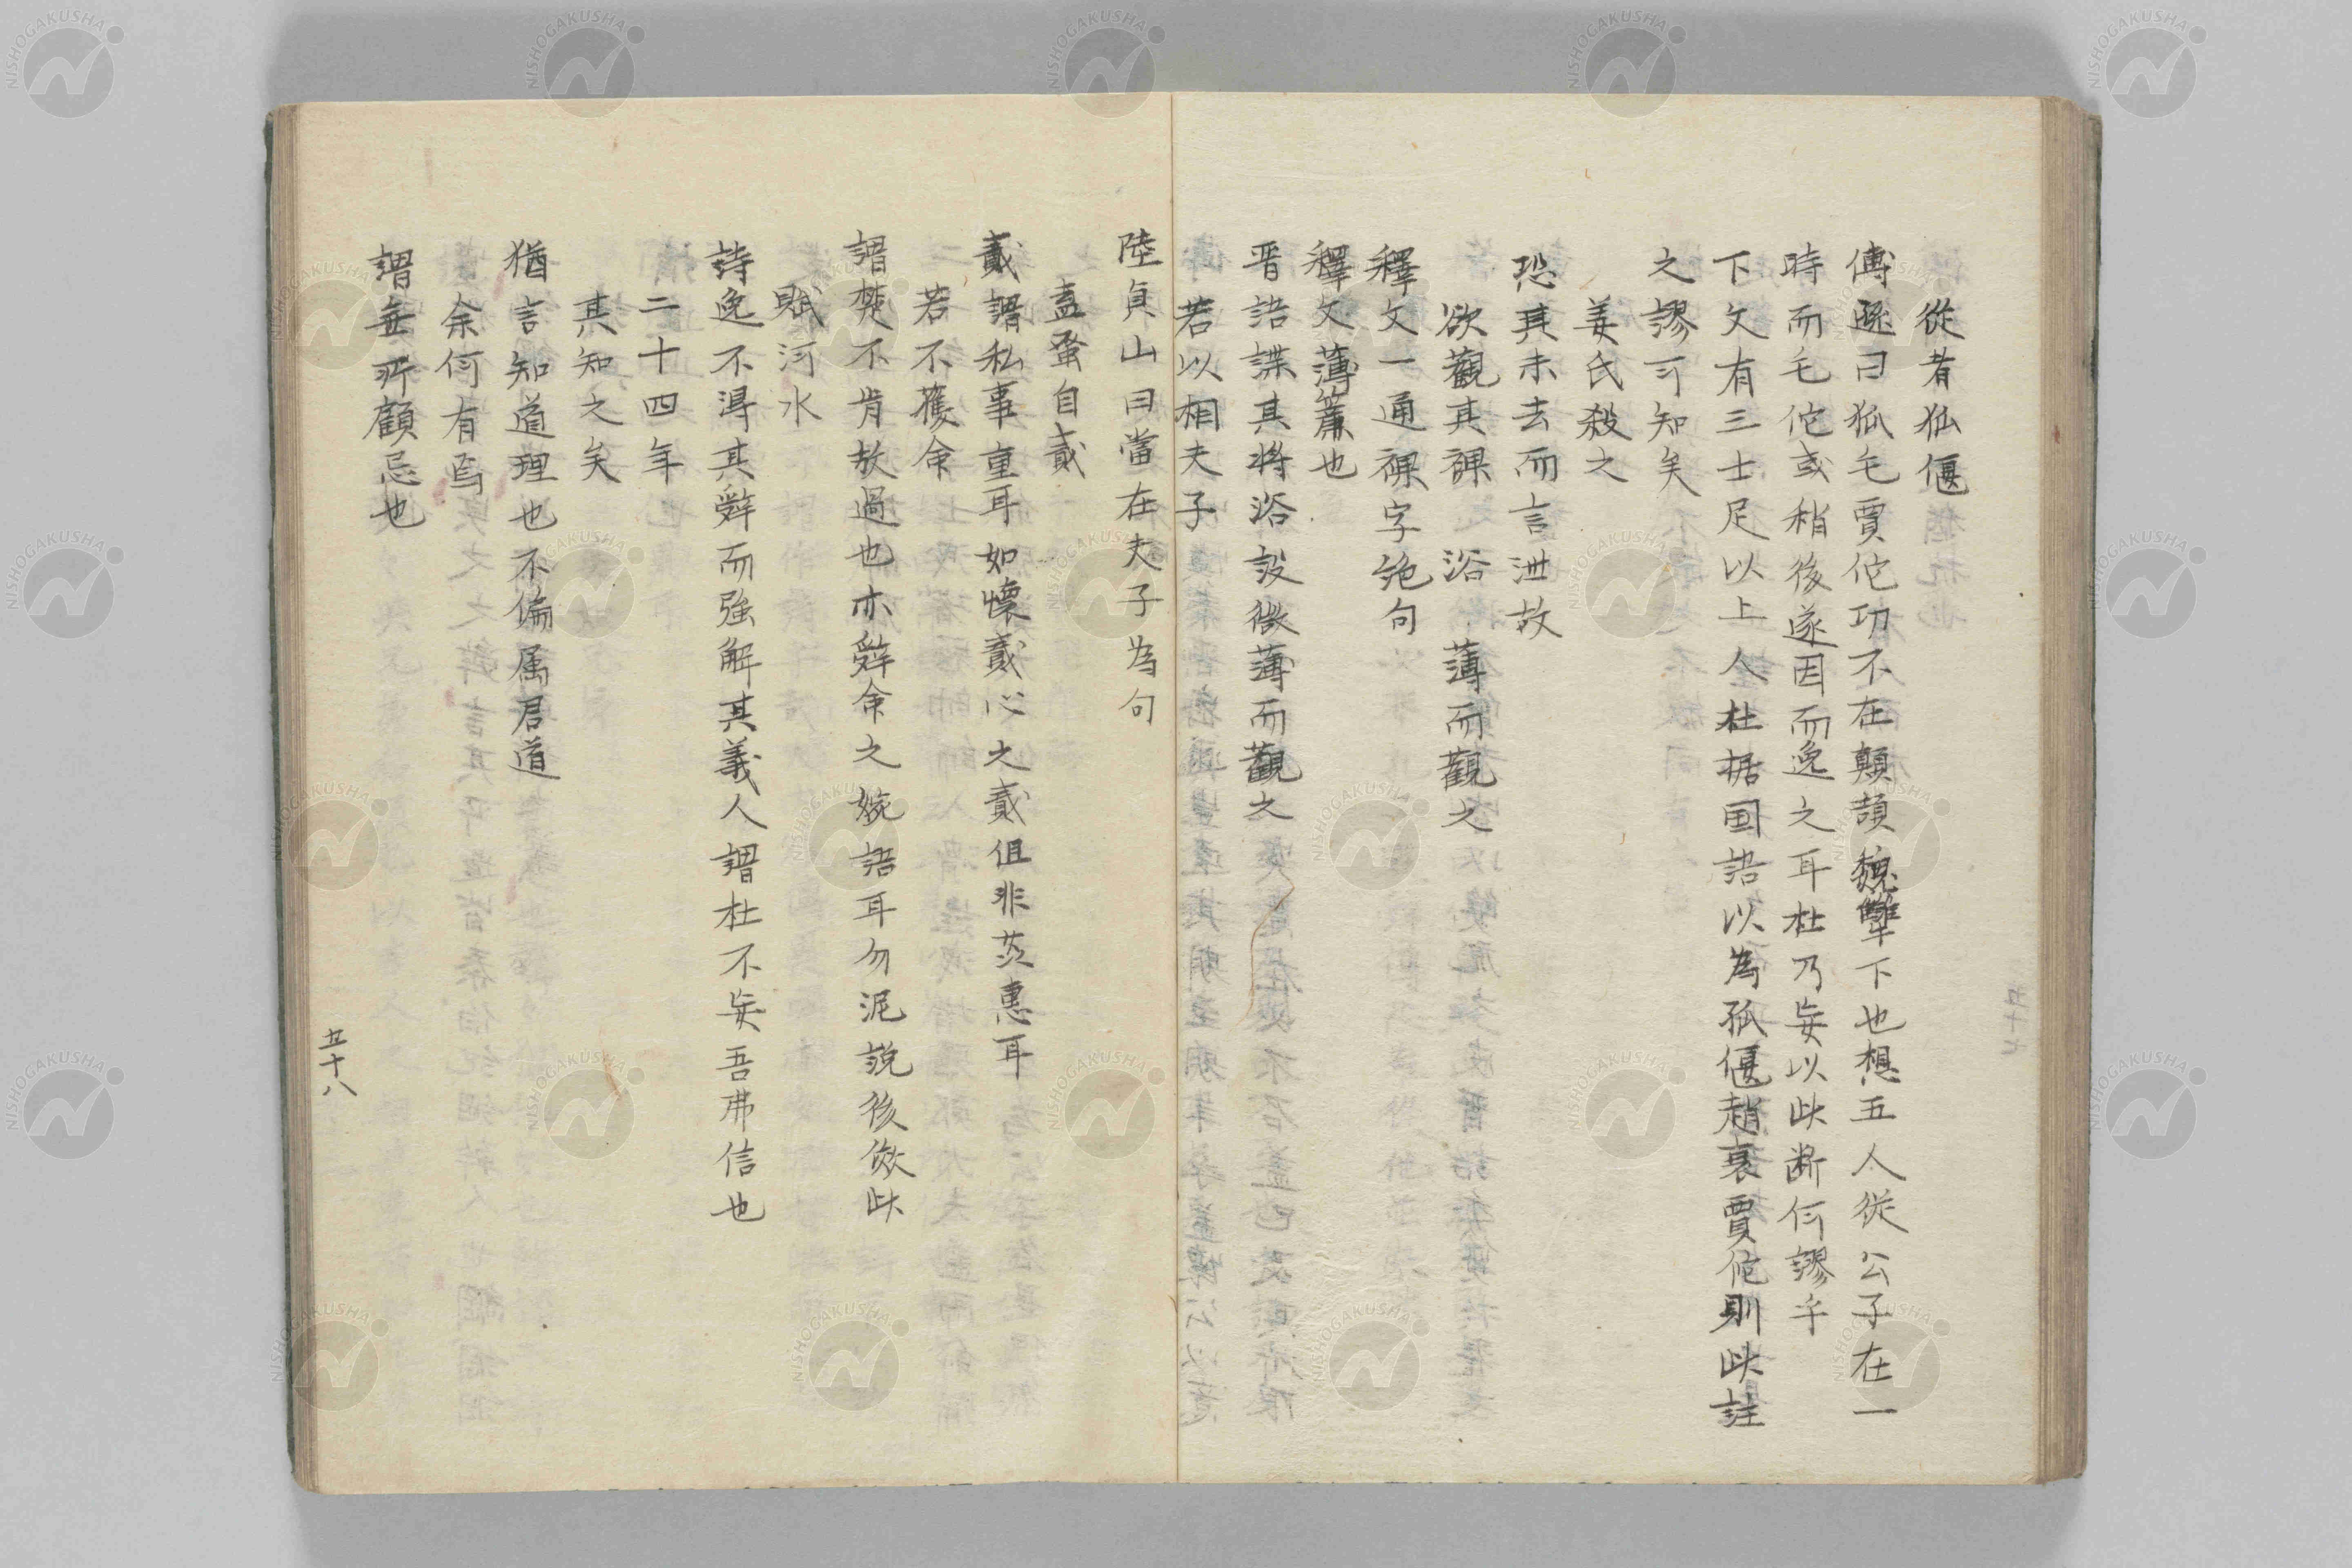 從者狐偃
傅遜曰狐毛賈佗功不在顛頡魏犨下也想五人從公子在一
時而毛佗或稍後遂因而逸之耳杜乃妄以此断何謬乎
下文有三士足以上人杜据国語以為狐偃趙衰賈佗則此註
之謬可知矣
姜氏殺之
恐其未去而言泄故
欲觀其裸 浴 薄而觀之
釋文一通裸字絶句
釋文薄簾也
晋語諜其將浴設微薄而觀之
若以相夫子
陸貞山曰當在夫子為句
盍蚤自貳
貳謂私事重耳如懷貳心之貳但非茨惠耳
若不獲命
謂楚不肯放過也亦辭命之婉語耳勿泥說後倣此
賦河水
詩逸不淂其辭而強解其義人謂杜不妄吾弗信也
二十四年
其知之矣
猶言知道理也不偏属君道
余何有焉
謂無所顧忌也
五十八
NISHOGAKUSHA